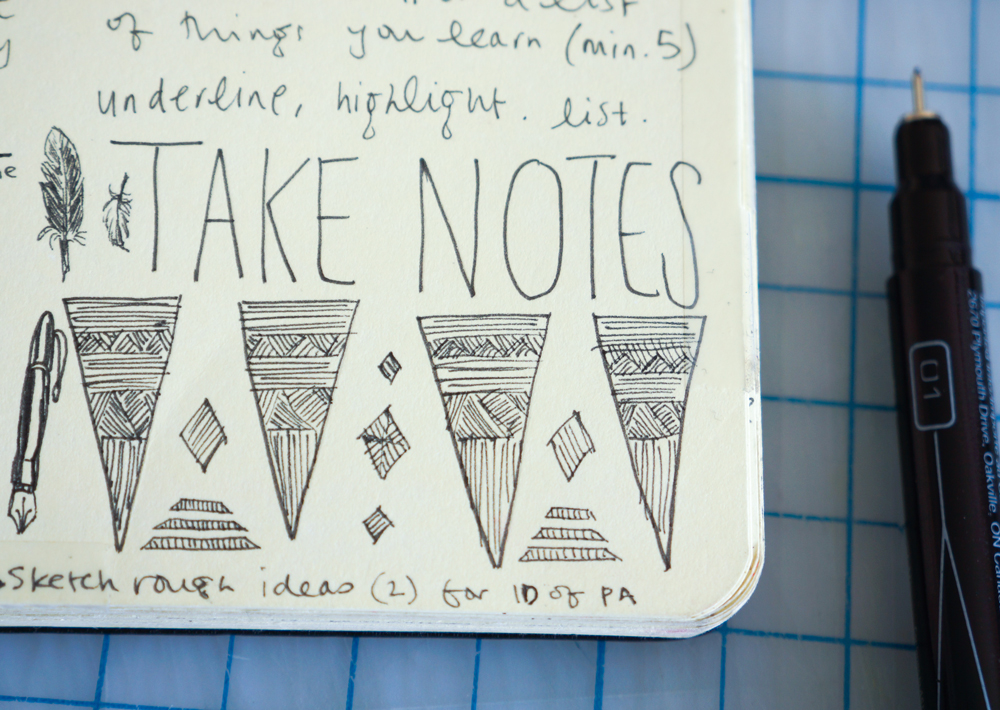 a list
of things you learn (min. 5)
underline, highlight. list.
TAKE NOTES
Sketch rough ideas (2) for 1D of PA
U1
2670 Plymouth Drive, Oakville, ON